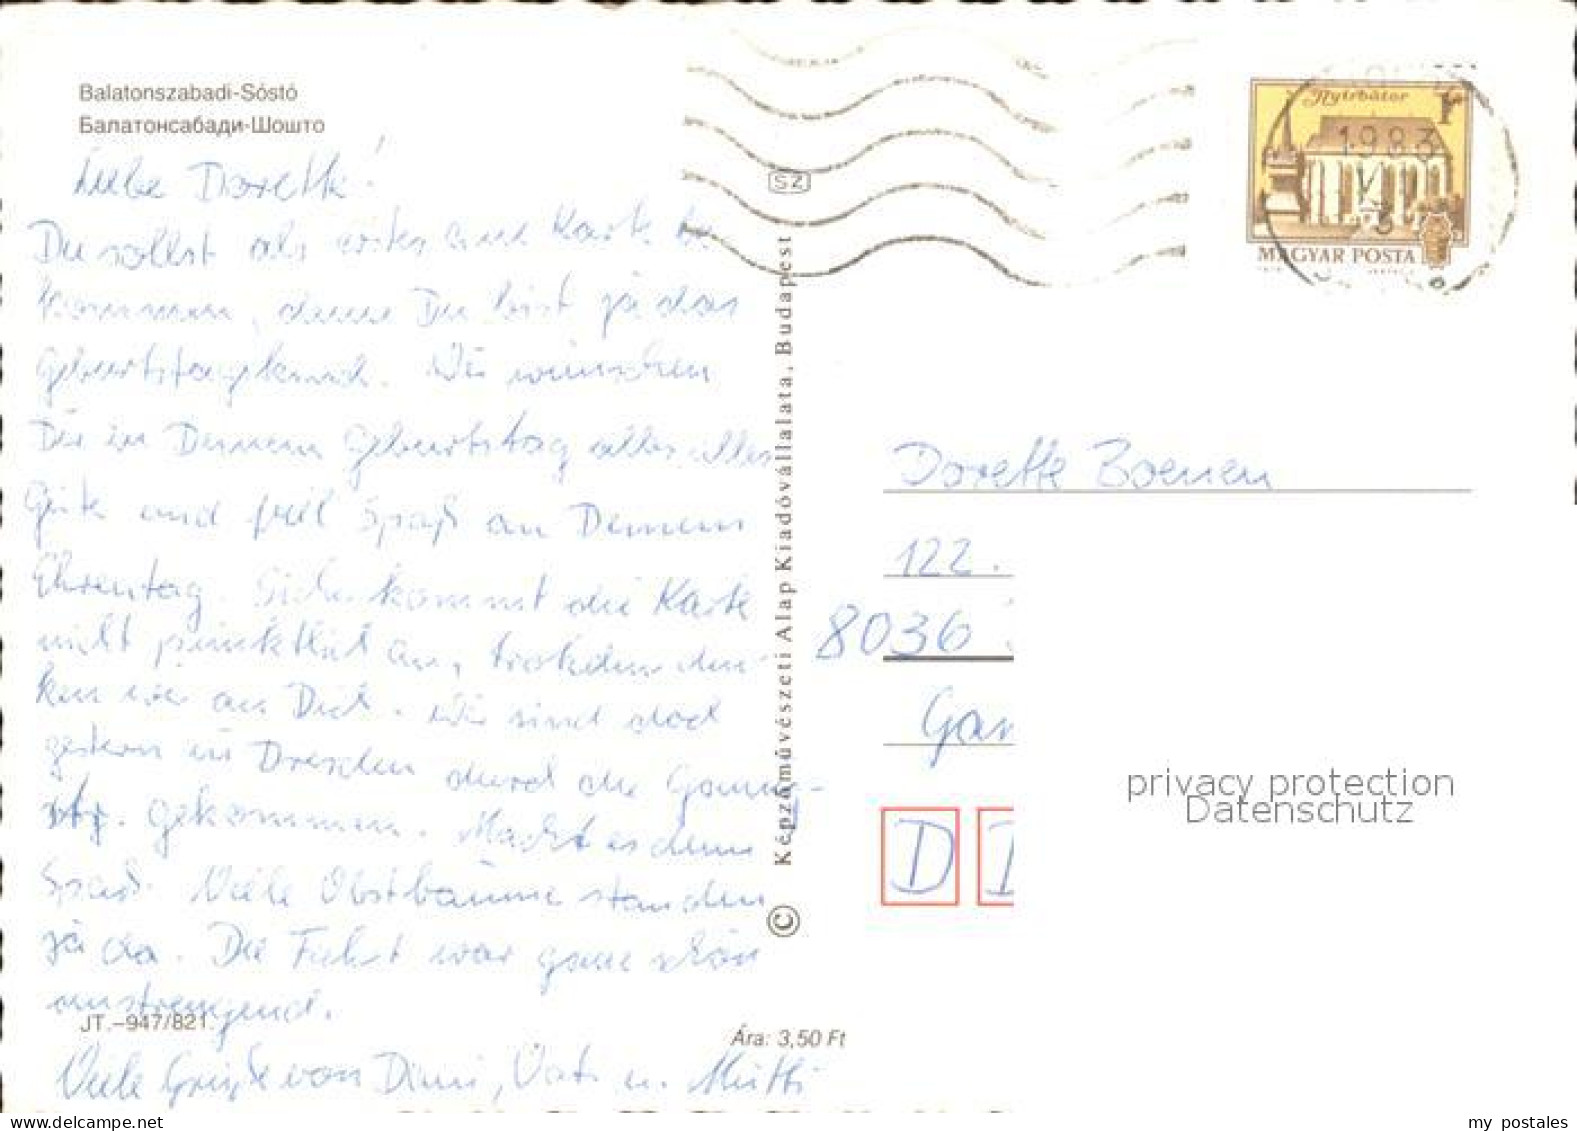 Balatonszabadi-Sóstó
Балатонсабади-Шошто
Liebe Dorette!
Du sollst als erstes eine Karte be
kommen, denn Du bist ja das
Geburtstagskind. Wir wünschen
Dir zu Deinem Geburtstag alles alles
Gute und viel Spaß an Deinem
Ehrentag. Sicher kommt die Karte
nicht pünktlich an, trotzdem den-
ken wir an Dich. Wir sind doch
gestern in Dresden durch die
gekommen. Macht es denn
Spaß. Viele Obstbäume standen
ja da. Die Fahrt war ganz schön
anstrengend.
JT.-947/821.
Viele Grüße von Dini, Vati u. Mutti
Ára: 3,50 Ft
SZ
© Képzőművészeti Alap Kiadóvállalata, Budapest
Nyírbátor
1983
V
3
MAGYAR POSTA
Dorette Boenen
122.
8036
D
privacy protection
Datenschutz
my postales